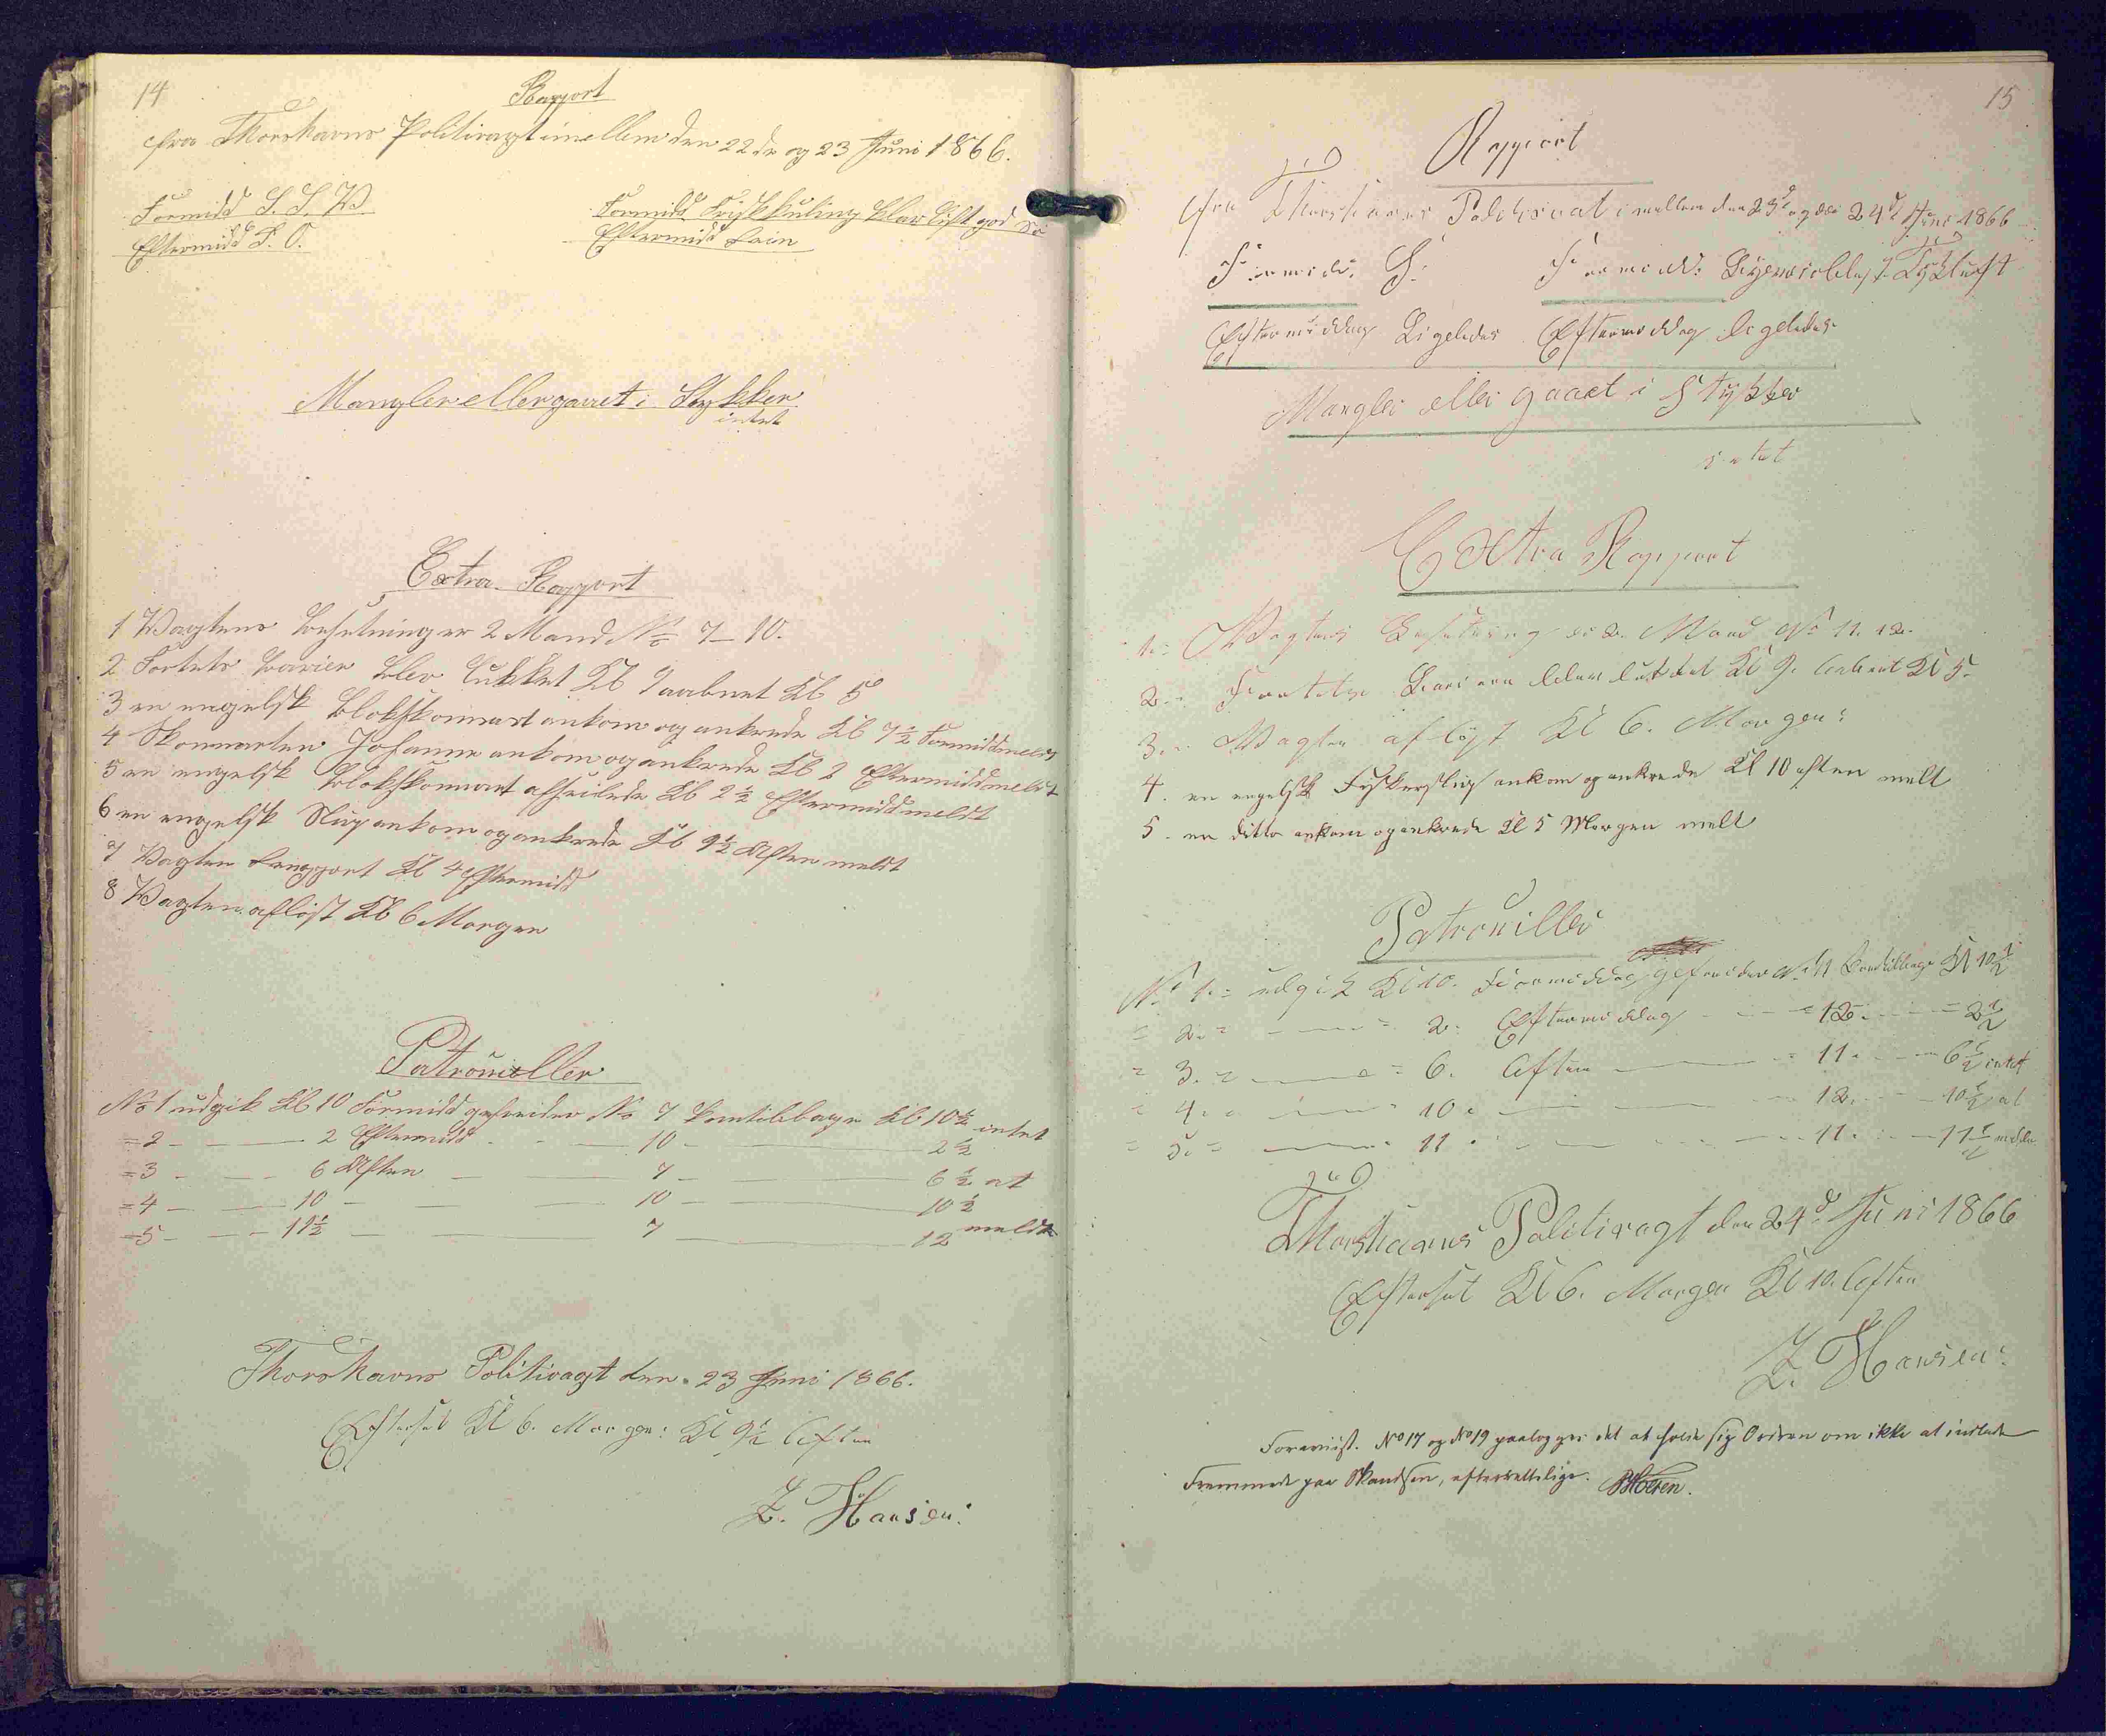 14
Rapport
fra Thorshavns Politivagt imellem den 22de og 23 Juni 1866.
Formidd S. S. W
Eftermidd S. O.
Formidd Friskkuling klar luft god Sö
Eftermidd Lain
Mangler eller gaaet i Stykker
intet
Extra Rapport
1 Vagtens Besetning er 2 Mand No 7-10.
2 Fortets Barier blev lukket Kl 9 aabnet Kl 5
3 en engelsk Blokskonnert ankom og ankrede Kl 7½ Formidd meldt
4 Skonnerten Johanne ankom og ankrede Kl 2 Eftermidd meldt
5 en engelsk Blokskonnert afseilede Kl 2½ Eftermidd meldt
6 en engelsk Slup ankom og ankrede Kl 9½ Aften meldt
7 Vagten Kl 4 Eftermidd
8 Vagten aflöst Kl 6 Morgen
Patrouiller
No 1 udgik Kl 10 Formidd geseider No 7 kom tilbage Kl 10½ intet
=2 - 2 Eftermidd - 10 - 2½
=3 - 6 Aften - 7 - 6½ at
=4 - 10 - 10 - 10½
=5 - 11½ - 7 - 12 melde
Thorshavns Politivagt den 23 Juni 1866.
Efterset Kl 6. Morgen: Kl 9½ Aften
Z. Hansen:
15
Rapport
fra Thorshavns Politivat imellem den 23de og den 24de Juni 1866
Formidd: S: Formidd: Tyk luft
Eftermiddag Ligeledes Eftermiddag Ligeledes
Mangler eller gaaet i Stykker
intet
Extra Rapport
1.= Vagtens Besetning er 2. Mand No 11. 12.
2.= Fortets Barieren blev lukket Kl 9. aabent Kl 5.
3.= Vagten aflöst Kl 6. Morgen:
4. en engelsk Fiskerslup ankom og ankrede Kl 10 aften melt
5. en ditto ankom og ankrede Kl 5 Morgen melt
Patrouiller
No 1.= udgik Kl 10. Formiddag geseider No 11 kom tilbage Kl 10½
= 2.= - 2. Eftermiddag - 12. - 2½
= 3.= - 6. Aften - 11. - 6½ intet
= 4.= - 10. - 12. - 10½ at
= 5.= - 11. - 11. - 11½ melde
Thorshavns Politivagt den 24de Juni 1866
Efterset Kl 6. Morgen Kl 10. Aften
Z. Hansen:
No 17 og No 19 paalægges det at holde sig Ordren om ikke at indlade
Fremmede paa Skandsen, efterrettelige.